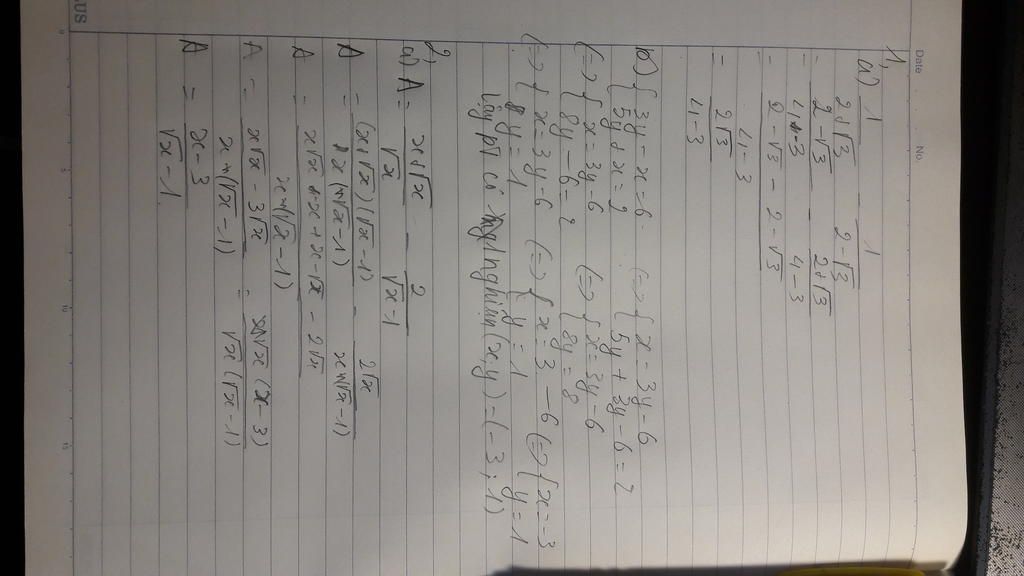 Date
No.
1,
a) 1/(2+√3) - 1/(2-√3)
= (2-√3)/(4-3) - (2+√3)/(4-3)
= (2-√3-2-√3)/(4-3)
= 2√3/(4-3)
b) { 3y-x=6 (=) { x=3y-6
5y+x=2 5y+3y-6=2
(=) { x=3y-6 (=) { x=3y-6
8y-6=2 8y=8
(=) { x=3y-6 (=) { x=3-6 (=) { x=-3
y=1 y=1 y=1
Vậy pt có nghiệm (x,y)=(-3;1)
2)
a) A = (x+√x)/√x - 2/(√x-1)
A = (x+√x)(√x-1)/x(√x-1) - 2√x/x(√x-1)
A = (x√x-x+x-√x-2√x)/x(√x-1)
A = (x√x-3√x)/x(√x-1) = √x(x-3)/√x(√x-1)
A = (x-3)/(√x-1)